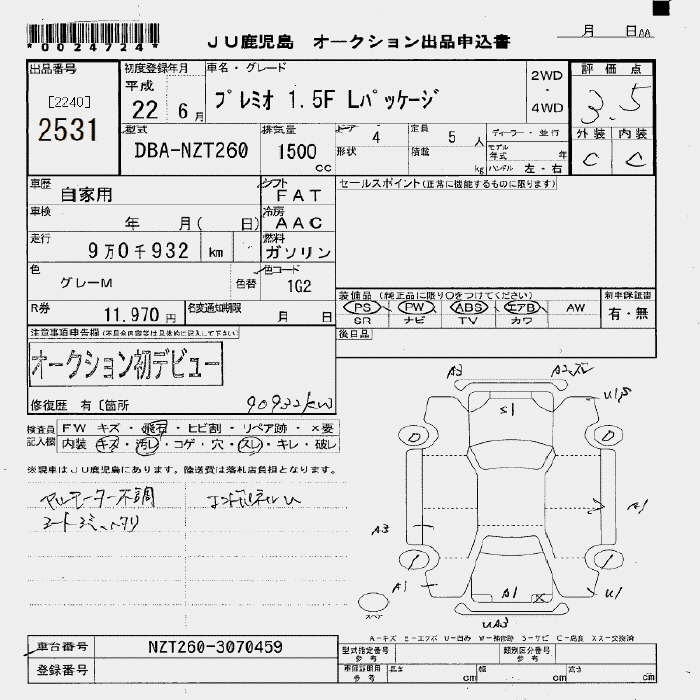 *0024724*
JU鹿児島 オークション出品申込書
月 日AA
出品番号
[2240]
2531
初度登録年月
平成
22 6月
車名・グレード
プレミオ 1.5F Lパッケージ
2WD
・
4WD
評価点
3.5
外装 内装
C C
型式
DBA-NZT260
排気量
1500
cc
ドア 4
形状
定員 5 人
積載 kg
ディーラー・並行
モデル年式 年
ハンドル 左・右
車歴
自家用
シフト
FAT
セールスポイント(正常に機能するものに限ります)
車検
年 月( 日)
冷房
AAC
走行
9万0千932 km
燃料
ガソリン
色
グレーM
色替
色コード
1G2
R券
11,970円
名変通知期限
月 日
装備品(純正品に限り○をつけてください)
PS PW ABS エアB AW
SR ナビ TV カワ
新車保証書
有・無
後日品
注意事項申告欄(不具合内容等は具体的に記入して下さい)
オークション初デビュー
修復歴 有〔箇所
90932km
検査員記入欄
FW キズ・飛石・ヒビ割・リペア跡・×要
内装・キズ・汚レ・コゲ・穴・スレ・キレ・破レ
※現車はJU鹿児島にあります。陸送費は落札店負担となります。
A3
S1
U1,S
0
0
A1
A3
1
1
A1
A1
U1
UA3
スペア
A-キズ E-エクボ U-凹み W-補修跡 S-サビ C-腐食 XX-交換済
車台番号
NZT260-3070459
登録番号
型式指定番号
参考
類別区分番号
参考
車検証明用
参考
長さ cm
幅 cm
高さ cm